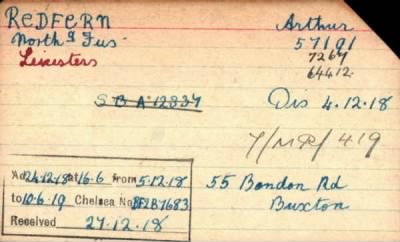 REDFERN Arthur
North'd Fus 57191
Leicesters 7267
64412
S B A 12337 Dis 4.12.18
7/MP/419
Ad 24-12-18 at 16-6 from 5-12-18 55 Bandon Rd
to 10-6-19 Chelsea No Buxton
Received 27.12.18